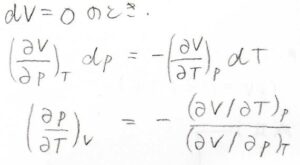 dV = 0 のとき.
(∂V/∂p)_T dp = -(∂V/∂T)_p dT
(∂p/∂T)_V = - (∂V/∂T)_p / (∂V/∂p)_T